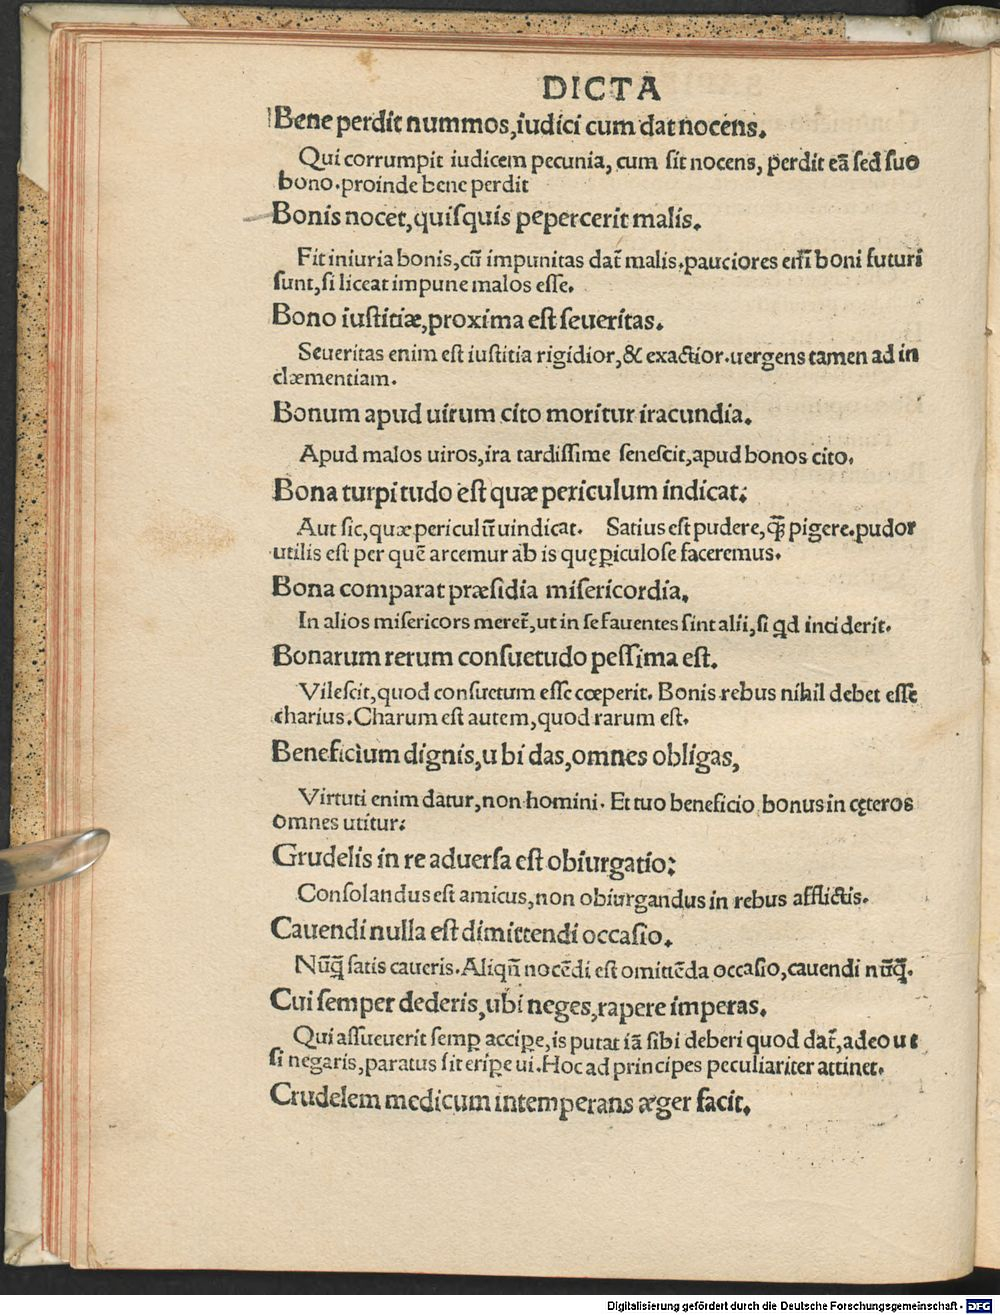 DICTA
Bene perdit nummos, iudici cum dat nocens.
Qui corrumpit iudicem pecunia, cum sit nocens, perdit eã sed suo
bono. proinde bene perdit
Bonis nocet, quisquis pepercerit malis.
Fit iniuria bonis, cũ impunitas dat̃ malis. pauciores em̃ boni futuri
sunt, si liceat impune malos esse.
Bono iustitiæ, proxima est seueritas.
Seueritas enim est iustitia rigidior, & exactior. uergens tamen ad in
clæmentiam.
Bonum apud uirum cito moritur iracundia.
Apud malos uiros, ira tardissime senescit, apud bonos cito.
Bona turpitudo est quæ periculum indicat:
Aut sic, quæ periculũ uindicat. Satius est pudere, q̃ pigere. pudor
utilis est per quẽ arcemur ab is quę ꝑiculose faceremus.
Bona comparat præsidia misericordia.
In alios misericors meret̃, ut in se fauentes sint alii, si qd inciderit.
Bonarum rerum consuetudo pessima est.
Vilescit, quod consuetum esse cœperit. Bonis rebus nihil debet esse
charius. Charum est autem, quod rarum est.
Beneficium dignis, ubi das, omnes obligas,
Virtuti enim datur, non homini. Et tuo beneficio bonus in cęteros
omnes utitur:
Grudelis in re aduersa est obiurgatio:
Consolandus est amicus, non obiurgandus in rebus afflictis.
Cauendi nulla est dimittendi occasio.
Nũq̃ satis caueris. Aliqñ nocẽdi est omittẽda occasio, cauendi nũq̃.
Cui semper dederis, ubi neges, rapere imperas.
Qui assueuerit semꝑ accipe, is putat iã sibi deberi quod dat̃, adeo ut
si negaris, paratus sit eriꝑe ui. Hoc ad principes peculiariter attinet.
Crudelem medicum intemperans æger facit.
Digitalisierung gefördert durch die Deutsche Forschungsgemeinschaft - DFG